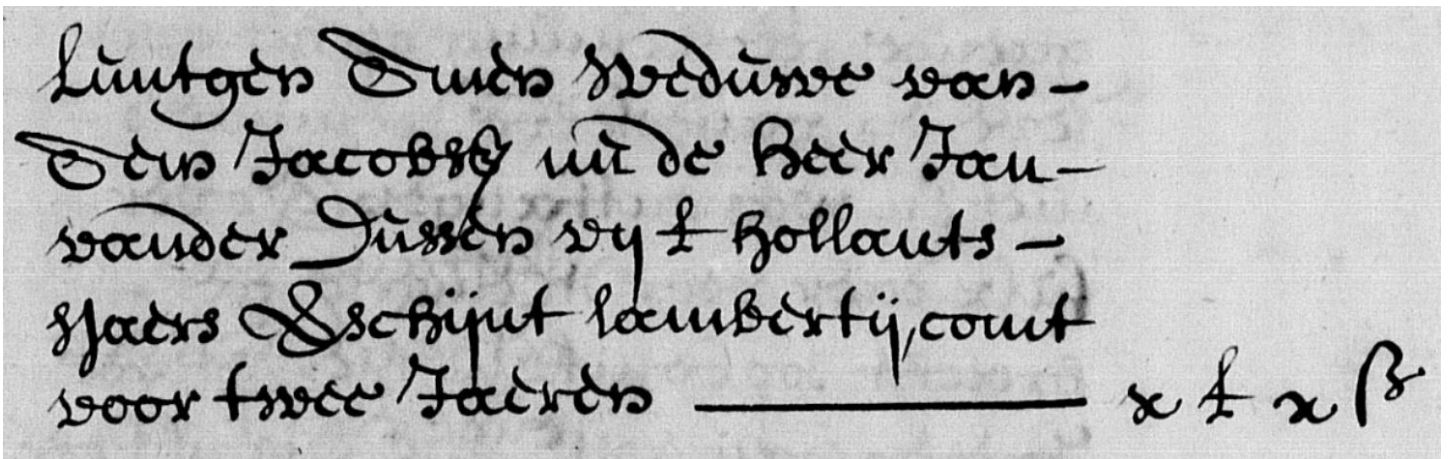 Luutgen Simen Weduwe van –
Sem Jacobsz nu de Heer Jan –
vander Dussen vij £ hollants –
sjaers Vschijnt lambertij, comt
voor twee Jaeren ——— x £ x ß